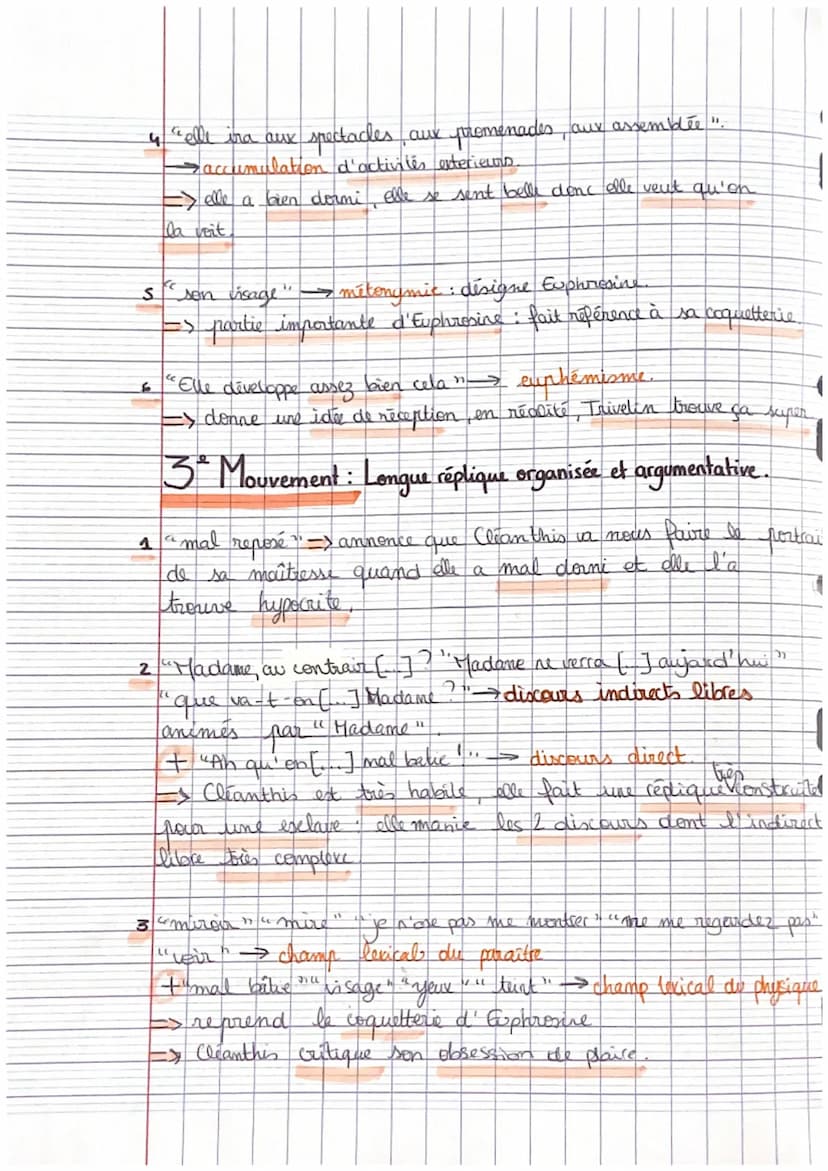 4 "elle ira aux spectacles, aux promenades, aux assemblée".
→ accumulation d'activités exterieurs.
=> elle a bien dormi, elle se sent belle donc elle veut qu'on
la voit.
5 "son visage" → métonymie : désigne Euphrosine.
=> partie importante d'Euphrosine : fait référence à sa coquetterie.
6 "Elle développe assez bien cela" → euphémisme.
=> donne une idée de réception, en réalité, Trivelin trouve ça super
3e Mouvement : Longue réplique organisée et argumentative.
1 "mal reposé" => annonce que Cléanthis va nous faire le portrai
de sa maîtresse quand elle a mal dormi et elle l'a
trouve hypocrite.
2 "Madame, au contrair [...] ? "Madame ne verra [...] aujard'hui"
"que va-t-on [...] Madame ?" → discours indirects libres
animés par "Madame".
+ "Ah qu'on [...] mal batie !" → discours direct.
=> Cléanthis est très habile, elle fait une réplique très construite
pour une esclave : elle manie les 2 discours dont l'indirect
libre très complexe
3 "miroir" "mire" "je n'ose pas me montrer" "me me regardez pas"
"voir" → champ lexical du paraître
+ "mal bâtie" "visage" "yeux" "teint" → champ lexical du physique
=> reprend la coquetterie d'Euphrosine
=> Cléanthis critique son obsession de plaire.